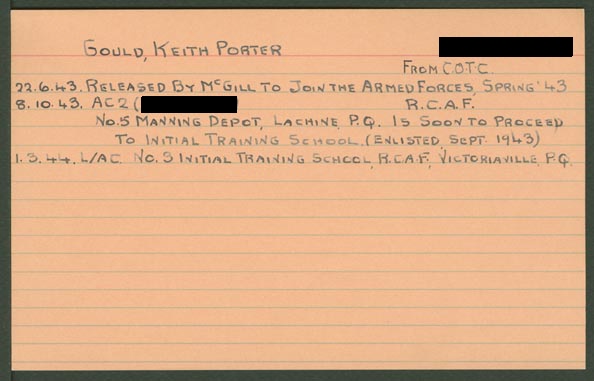 GOULD, KEITH PORTER
FROM C.O.T.C.
22.6.43. RELEASED BY McGILL TO JOIN THE ARMED FORCES, SPRING '43
8.10.43. AC2 ( R.C.A.F.
No.5 MANNING DEPOT, LACHINE, P.Q. IS SOON TO PROCEED
TO INITIAL TRAINING SCHOOL. (ENLISTED, SEPT. 1943)
1.3.44. L/AC. No. 3 INITIAL TRAINING SCHOOL, R.C.A.F., VICTORIAVILLE, P.Q.